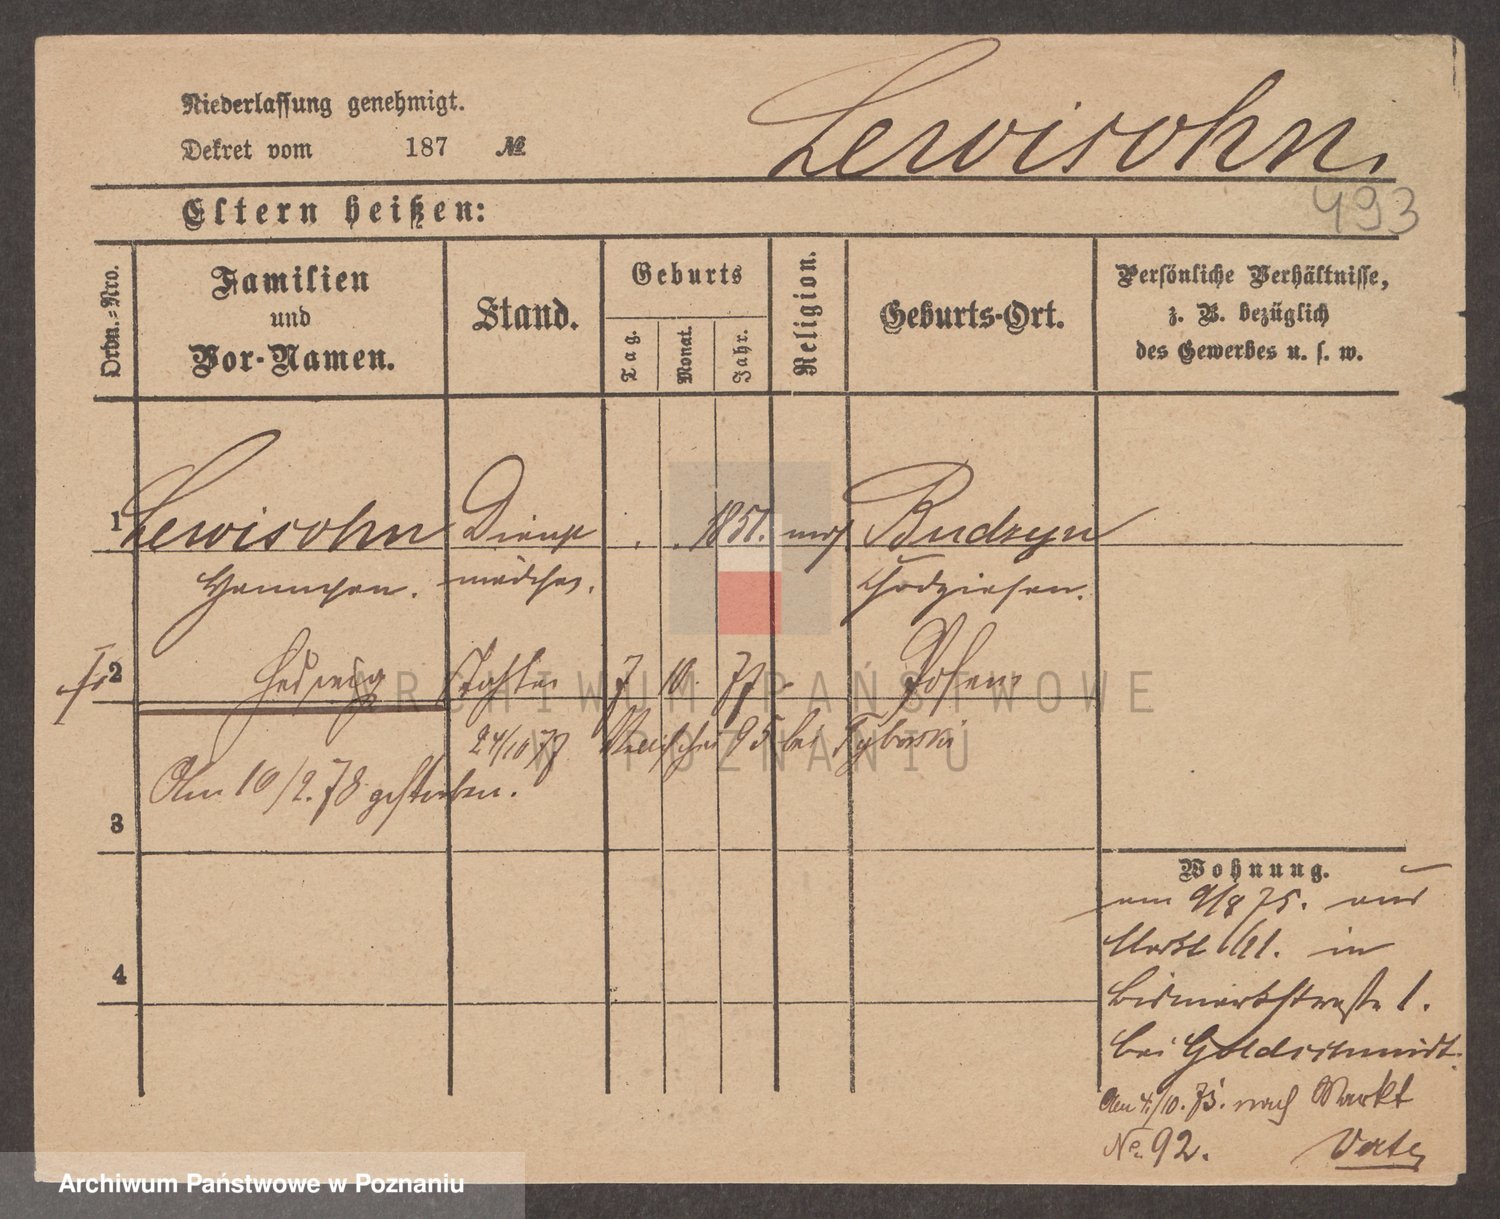 Niederlassung genehmigt.
Dekret vom 187 №
Lewisohn.
493
Eltern heißen:
Ordn.-Nro.
Familien
und
Vor-Namen.
Stand.
Geburts
Tag.
Monat.
Jahr.
Religion.
Geburts-Ort.
Persönliche Verhältnisse,
z. B. bezüglich
des Gewerbes u. s. w.
1 Lewisohn Dienst 1851. mos. Budzyn
Hannchen. mädchen. Chodziesen.
2 Hedwig Tochter 7 10. 77 Posen
24/10 77 95 bei Tyborski
Am 10/2. 78 gestorben.
3
4
Wohnung.
am 9/8 75. aus
Markt 61. in
Bismarkstraße 1.
bei Goldschmidt.
Am 4/10. 75. nach Markt
No. 92.
ARCHIWUM PAŃSTWOWE
W POZNANIU
Archiwum Państwowe w Poznaniu